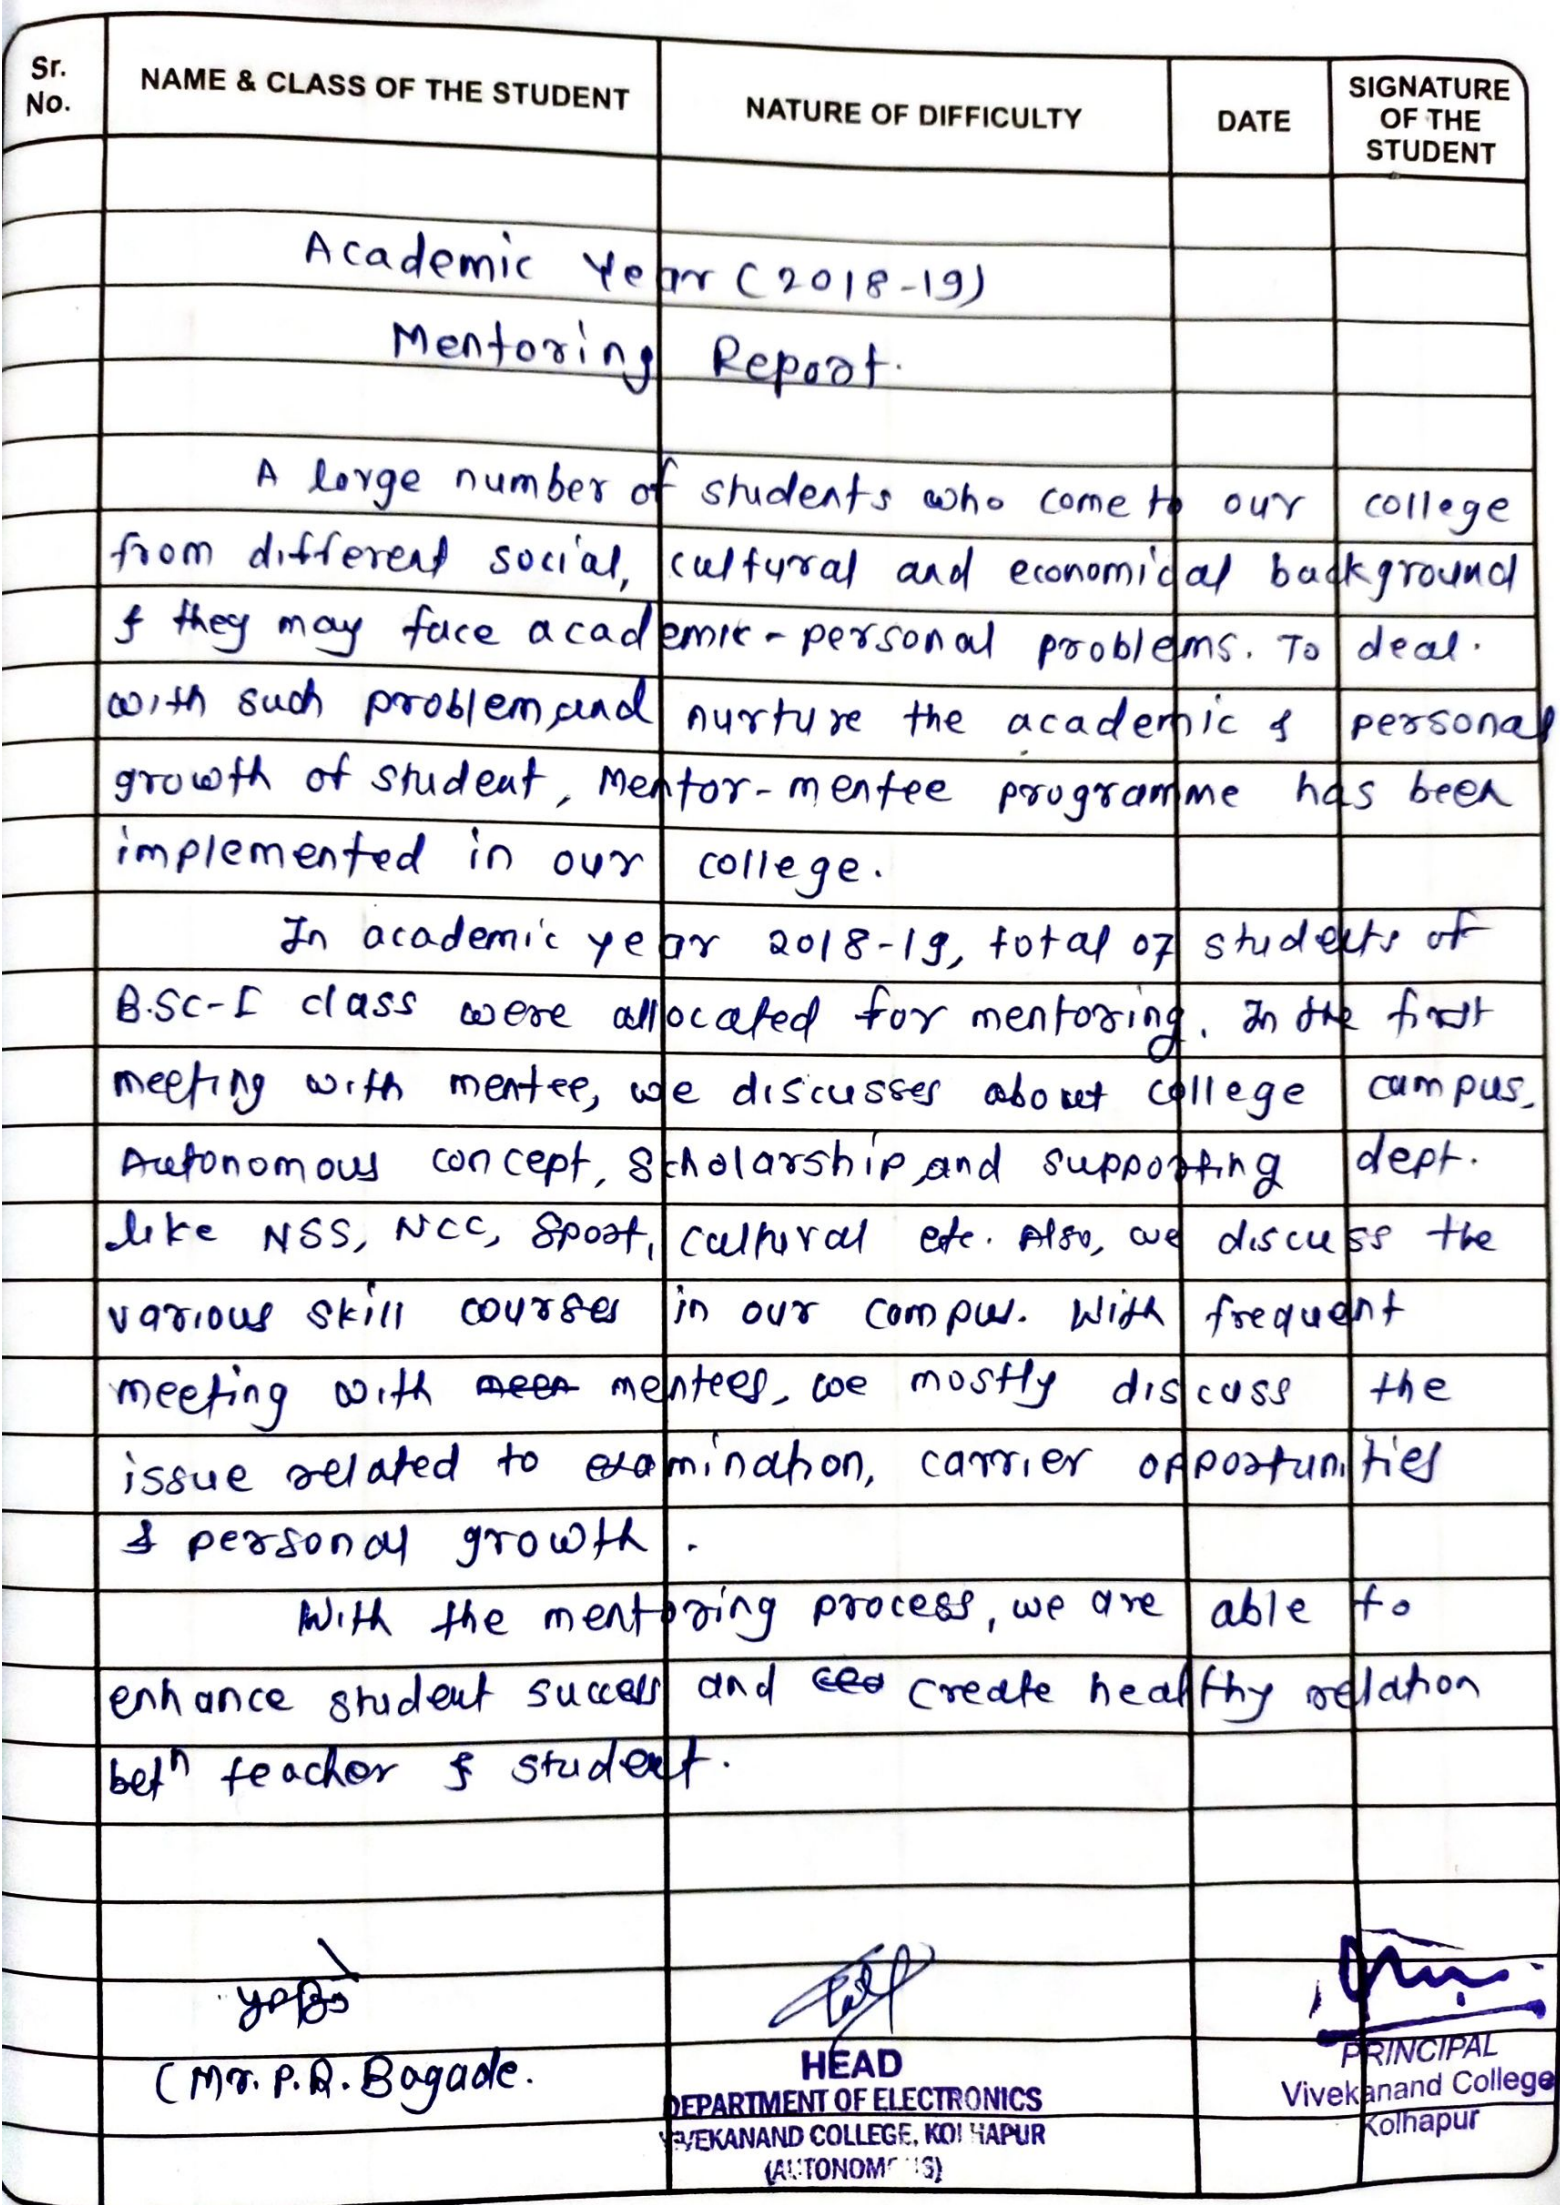 Sr.
No.
NAME & CLASS OF THE STUDENT
NATURE OF DIFFICULTY
DATE
SIGNATURE
OF THE
STUDENT
Academic Year (2018-19)
Mentoring Report.
A large number of students who come to our college
from different social, cultural and economical background
& they may face academic-personal problems. To deal.
with such problem, and nurture the academic & personal
growth of student, Mentor-mentee programme has been
implemented in our college.
In academic year 2018-19, total 07 students of
B.SC-I class were allocated for mentoring. In the first
meeting with mentee, we discusses about college campus,
Autonomous concept, Scholarship, and supporting dept.
like NSS, NCC, Sport, Cultural etc. Also, we discuss the
various skill courses in our campus. With frequent
meeting with mentees, we mostly discuss the
issue related to examination, carrier opportunities
& personal growth.
With the mentoring process, we are able to
enhance student success and create healthy relation
betn teacher & student.
(Mr. P.R. Bagade.
HEAD
DEPARTMENT OF ELECTRONICS
VIVEKANAND COLLEGE, KOLHAPUR
(AUTONOMOUS)
PRINCIPAL
Vivekanand College
Kolhapur